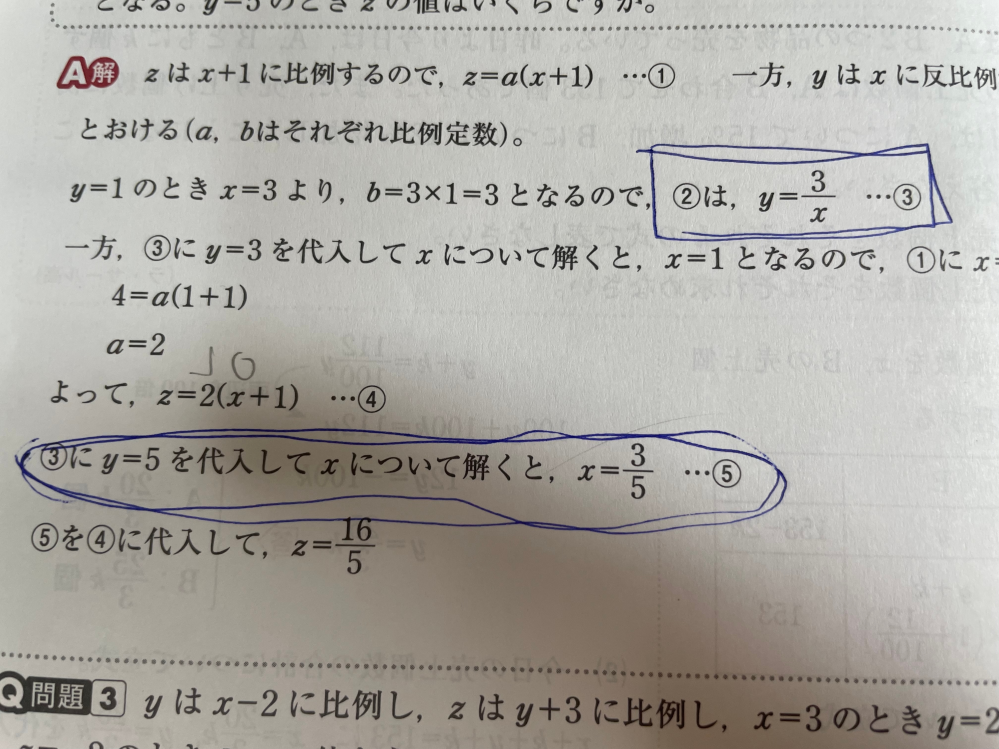 となる。y=5のときzの値はいくらですか。
A解 zはx+1に比例するので，z=a(x+1) …① 一方，yはxに反比例
とおける(a，bはそれぞれ比例定数)。
y=1のときx=3より，b=3×1=3となるので，②は，y=3/x …③
一方，③にy=3を代入してxについて解くと，x=1となるので，①にx=
4=a(1+1)
a=2
10
よって，z=2(x+1) …④
③にy=5を代入してxについて解くと，x=3/5 …⑤
⑤を④に代入して，z=16/5
Q問題3 yはx−2に比例し，zはy+3に比例し，x=3のときy=2